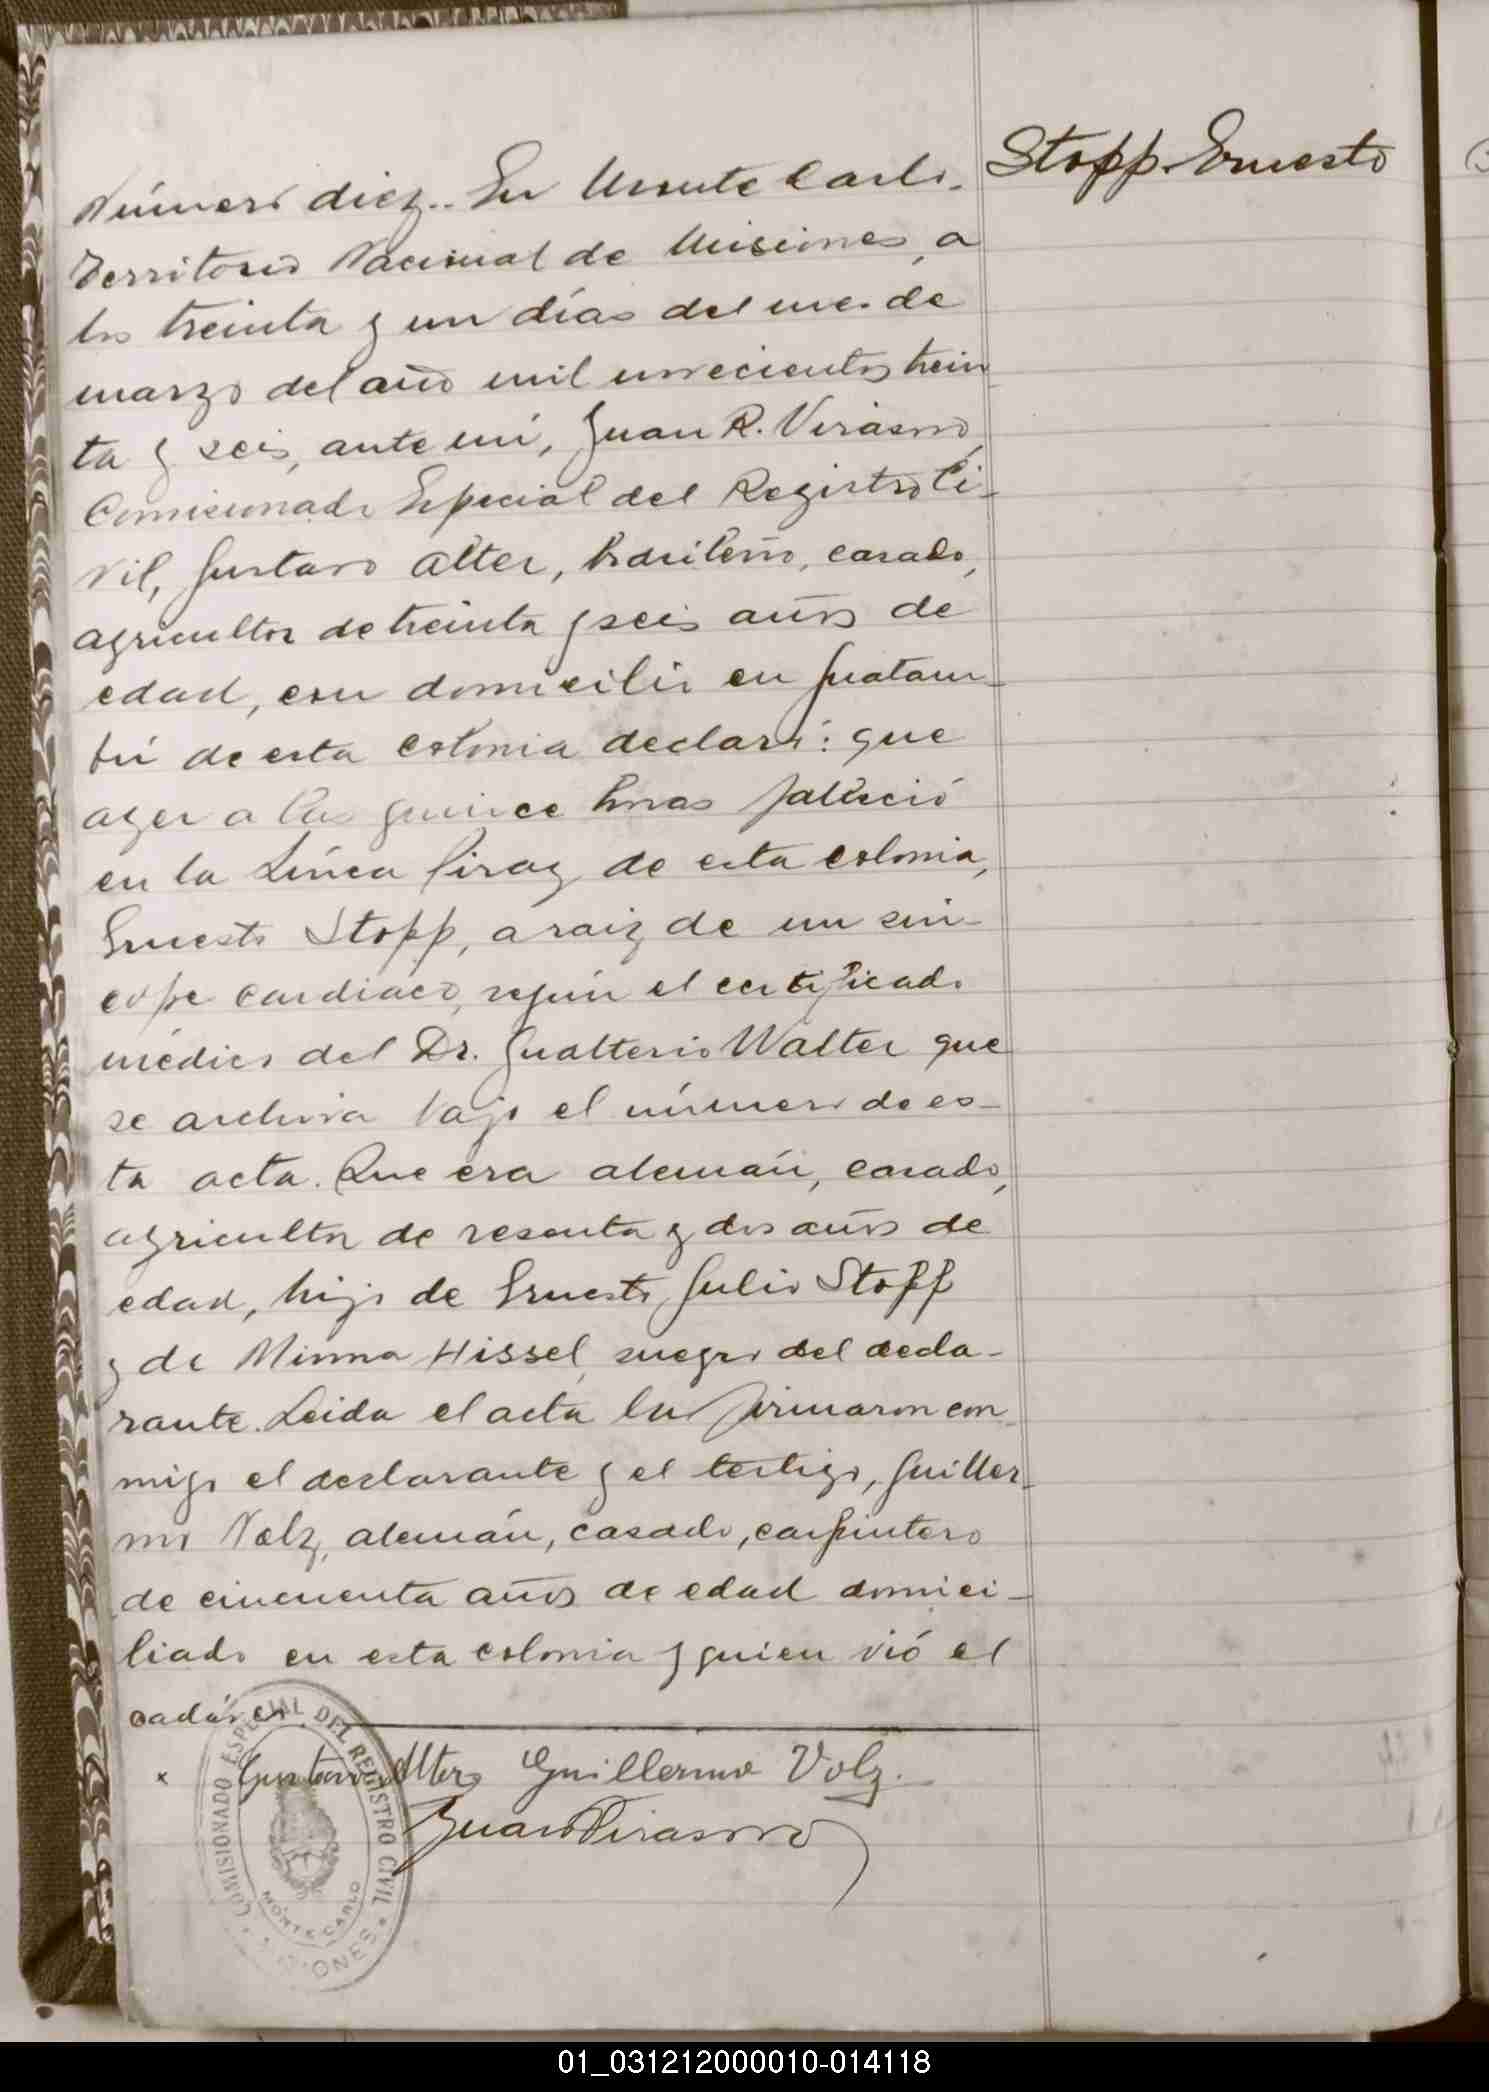 Stopp Ernesto
Número diez.. En Monte Carlo,
Territorio Nacional de Misiones, a
los treinta y un días del mes de
marzo del año mil novecientos trein
ta y seis, ante mí, Juan R. Virasoro,
Comisionado Especial del Registro Ci-
vil, Gustavo Alter, brasileño, casado,
agricultor de treinta y seis años de
edad, con domicilio en Guatam-
bú de esta colonia declaró: que
ayer a las quince horas falleció
en la Línea Piray de esta colonia,
Ernesto Stopp, a raiz de un sín-
cope cardíaco, según el certificado
médico del Dr. Gualterio Walter que
se archiva bajo el número de es-
ta acta. Que era alemán, casado,
agricultor de sesenta y dos años de
edad, hijo de Ernesto Julio Stopp
y de Minna Hissel, suegro del decla-
rante. Leida el acta la firmaron con
migo el declarante y el testigo, Guiller-
mo Volz, alemán, casado, carpintero
de cincuenta años de edad domici-
liado en esta colonia y quien vió el
cadáver.
x Gustavo Alter Guillermo Volz.
Juan Virasoro
COMISIONADO ESPECIAL DEL REGISTRO CIVIL
MONTE CARLO
MISIONES
01_031212000010-014118